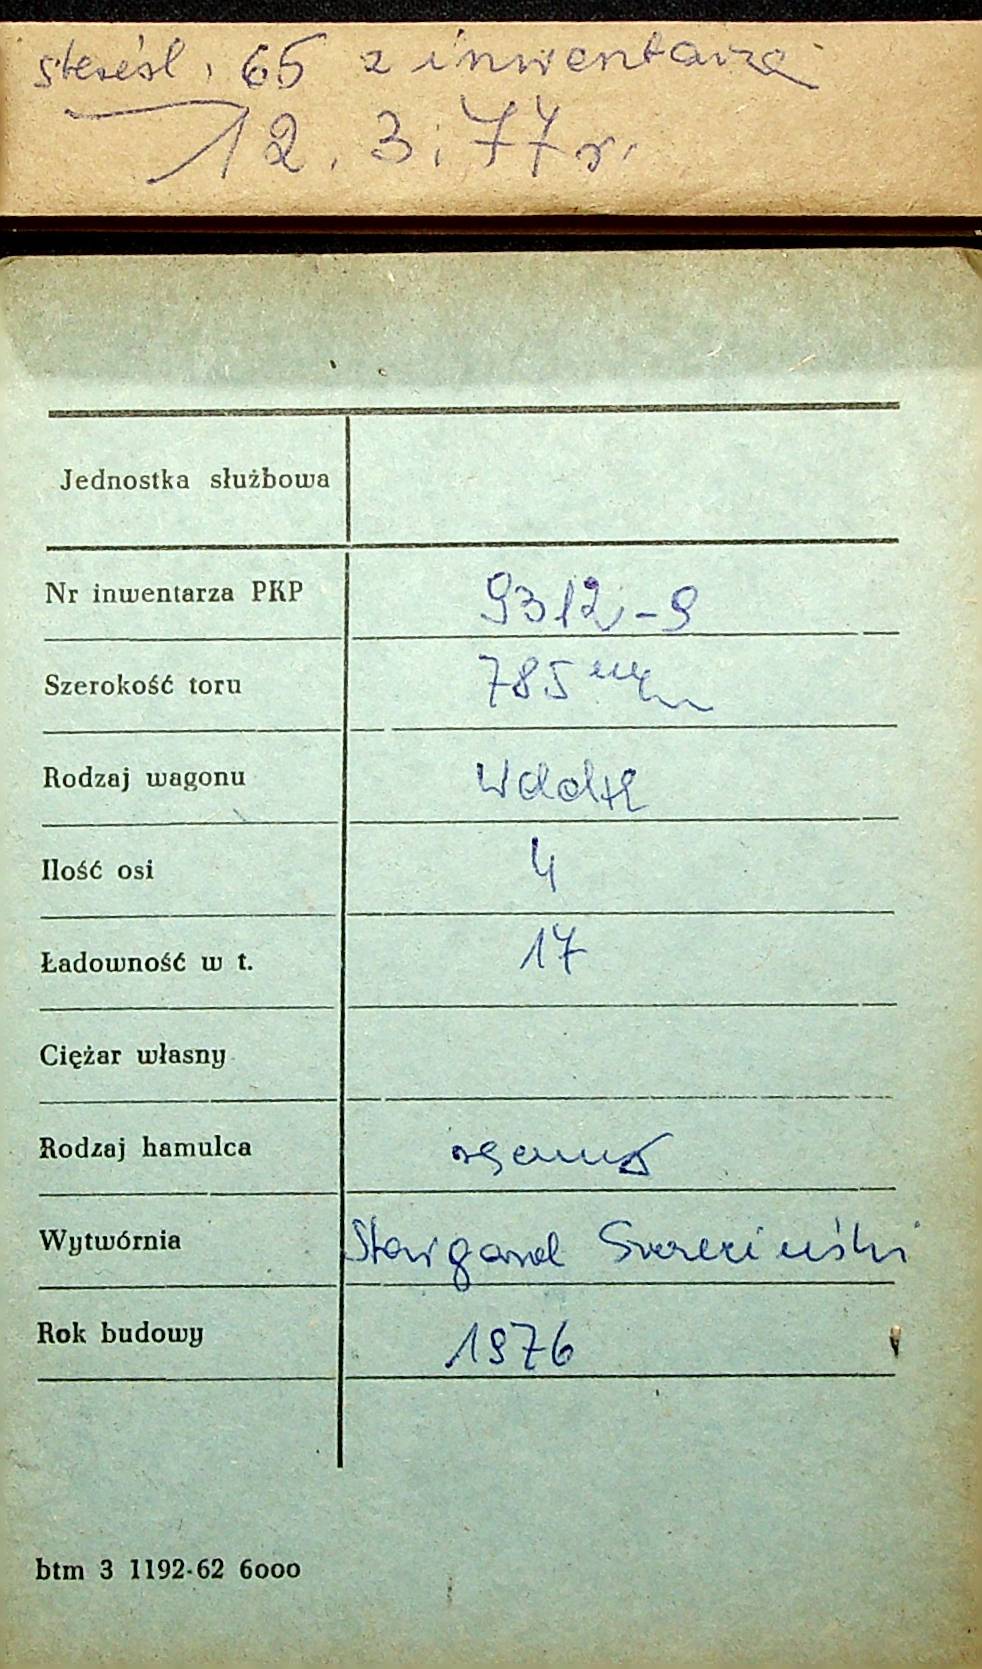 skreśl. 65 z inwentarza
12.3.77r.
Jednostka służbowa
Nr inwentarza PKP 9312-9
Szerokość toru 785 m/m
Rodzaj wagonu Wddxh
Ilość osi 4
Ładowność w t. 17
Ciężar własny
Rodzaj hamulca
Wytwórnia Stargard Szczeciński
Rok budowy 1976
btm 3 1192-62 6000